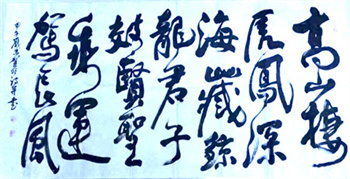 高山棲
虎鳳深
海藏
龍君子
效賢聖
乘運
駕長風